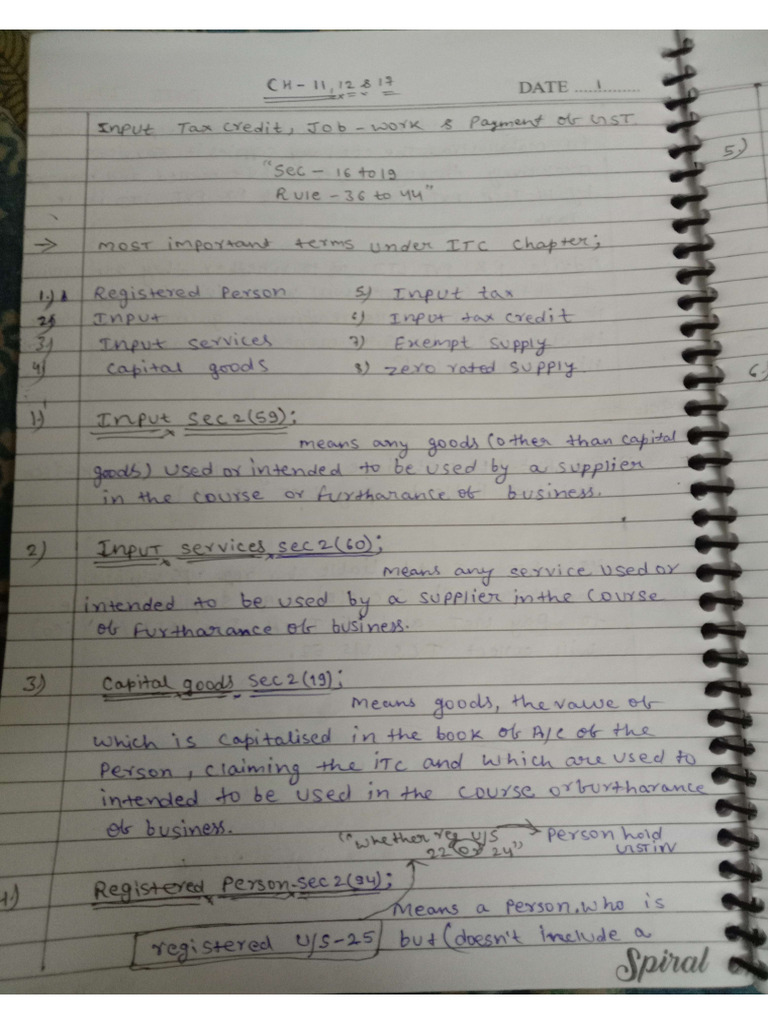 CH-11, 12 & 17
DATE ....1.........
Input Tax Credit, Job-work & Payment of GST.
"Sec - 16 to 19
Rule - 36 to 44"
→ MOST important terms under ITC Chapter;
1.) Registered Person 5) Input tax
2) Input 6) Input tax credit
3) Input services 7) Exempt supply
4) capital goods 8) zero rated supply.
1.) Input Sec 2(59);
means any goods (other than capital
goods) used or intended to be used by a supplier
in the course or furtharance of business.
2) Input services sec 2(60);
means any service used or
intended to be used by a supplier in the course
of furtharance of business.
3) Capital goods sec 2(19);
Means goods, the value of
which is capitalised in the book of A/c of the
Person, claiming the ITC and which are used to
intended to be used in the course or furtharance
of business.
("Whether reg U/S → Person hold
22 or 24" GSTIN
4.) Registered Person - sec 2(94);
Means a Person, who is
registered U/S-25 but (doesn't include a
Spiral
5)
6.)